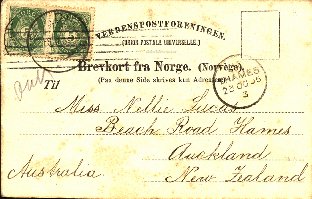 VERDENSPOSTFORENINGEN.
(UNION POSTALE UNIVERSELLE.)
Brevkort fra Norge. (Norvège)
(Paa denne Side skrives kun Adressen)
Til
Miss Nellie Lucas
Beach Road Hames
Auckland
Australia New Zealand
THAMES